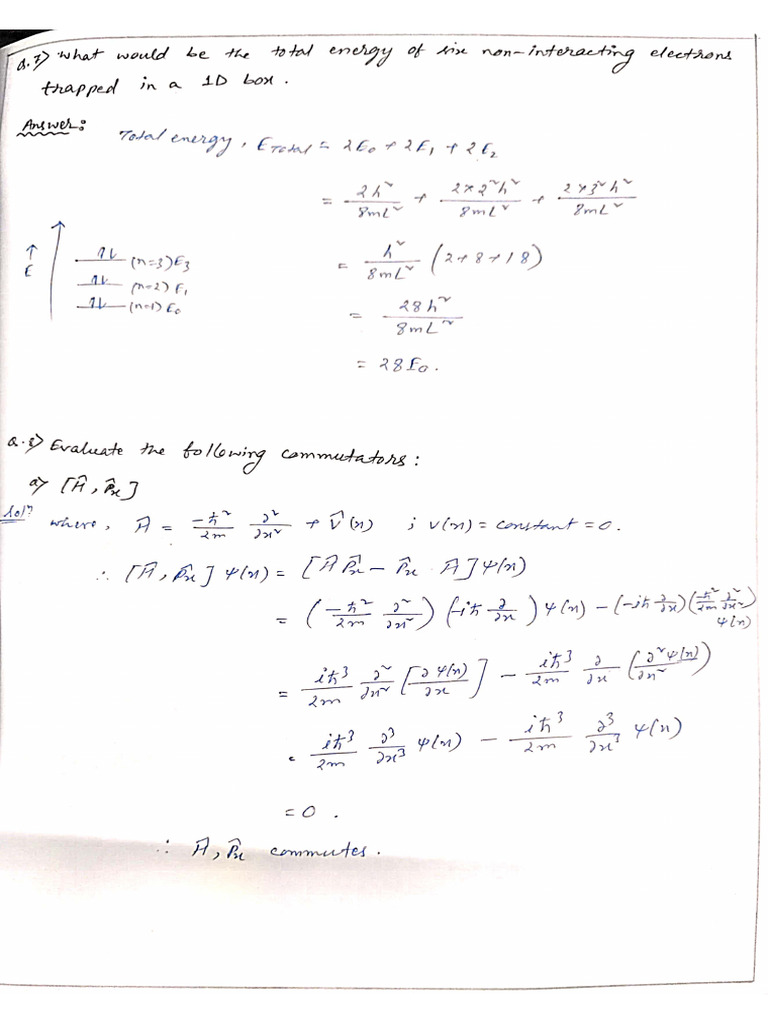 Q.7) What would be the total energy of six non-interacting electrons
trapped in a 1D box.
Answer:
Total energy, E_Total = 2E₀ + 2E₁ + 2E₂
= 2h²/8mL² + 2×2²h²/8mL² + 2×3²h²/8mL²
= h²/8mL² (2+8+18)
= 28h²/8mL²
= 28E₀.
↑ E
↑↓ (n=3) E₃
↑↓ (n=2) E₁
↑↓ (n=1) E₀
Q.8) Evaluate the following commutators:
a) [Ĥ, p̂ₓ]
Solⁿ where, Ĥ = -ħ²/2m ∂²/∂x² + V̂(x) ; V(x) = constant = 0.
∴ [Ĥ, p̂ₓ] Ψ(x) = [Ĥ p̂ₓ - p̂ₓ Ĥ] Ψ(x)
= (-ħ²/2m ∂²/∂x²) (-iħ ∂/∂x) Ψ(x) - (-iħ ∂/∂x) (-ħ²/2m ∂²/∂x²) Ψ(x)
= iħ³/2m ∂²/∂x² [∂Ψ(x)/∂x] - iħ³/2m ∂/∂x (∂²Ψ(x)/∂x²)
= iħ³/2m ∂³/∂x³ Ψ(x) - iħ³/2m ∂³/∂x³ Ψ(x)
= 0.
∴ Ĥ, p̂ₓ commutes.